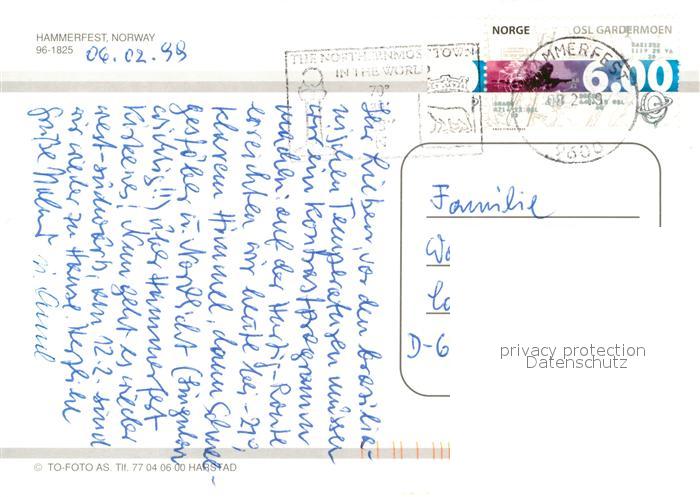 HAMMERFEST, NORWAY
96-1825
06.02.99
THE NORTHERNMOST TOWN
IN THE WORLD
70°
NORGE OSL GARDERMOEN
6.00
HAMMERFEST
9600
Ihr Lieben, vor den brasilia-
nischen Temperaturen müssen
wir ein Kontrastprogramm
machen: auf der Hurtig-Route
erreichten wir heute bei -21°,
klarem Himmel, dann Schnee-
gestöber u. Nordlicht
über Hammerfest
Kirkenes! Nun geht es wieder
west-südwärts, am 12.2. sind
wir wieder zu Hause. Herzliche
Grüße
Familie
D-6
privacy protection
Datenschutz
© TO-FOTO AS. Tlf. 77 04 06 00 HARSTAD